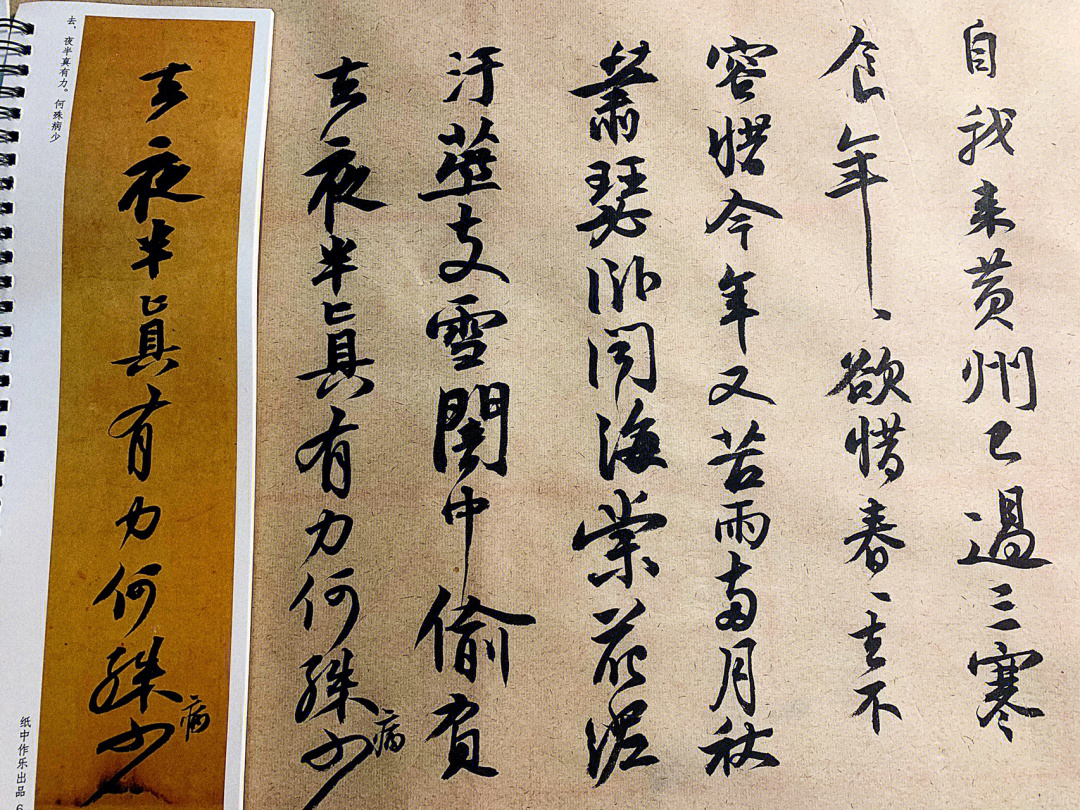 自我来黄州已過三寒
食年、欲惜春、去不
容惜今年又苦雨兩月秋
蕭瑟卧聞海棠花泥
汙燕支雪闇中偷負
去夜半真有力何殊少
病
去夜半真有力何殊少
病
去，夜半真有力。何殊病少
纸中作乐出品
6